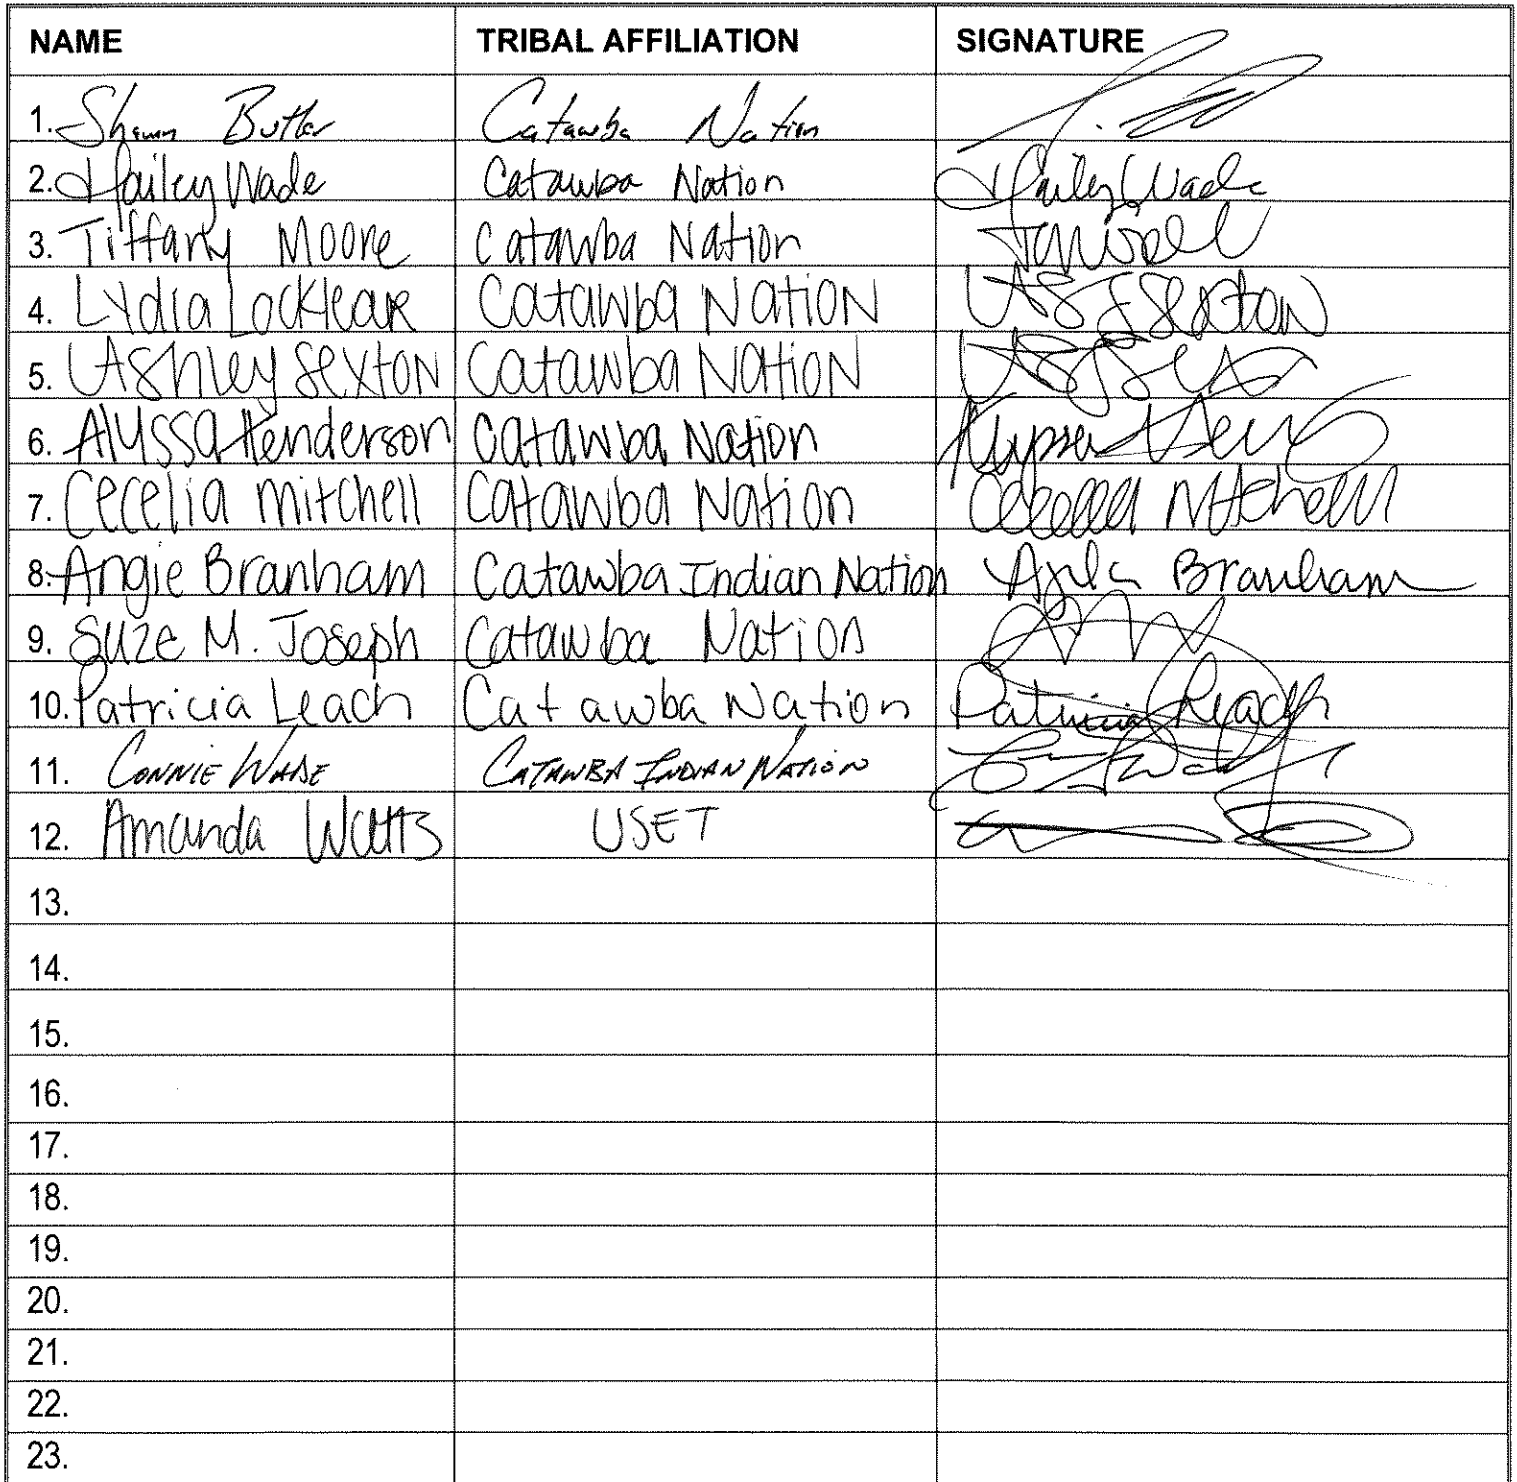 NAME TRIBAL AFFILIATION SIGNATURE
1. Shawn Butler Catawba Nation
2. Hailey Wade Catawba Nation Hailey Wade
3. Tiffany Moore Catawba Nation
4. Lydia Locklear Catawba Nation Sexton
5. Ashley Sexton Catawba Nation
6. Alyssa Henderson Catawba Nation Alyssa
7. Cecelia Mitchell Catawba Nation Cecelia Mitchell
8. Angie Branham Catawba Indian Nation Branham
9. Suze M. Joseph Catawba Nation
10. Patricia Leach Catawba Nation Patricia Leach
11. Connie Wade Catawba Indian Nation
12. Amanda Watts USET
13.
14.
15.
16.
17.
18.
19.
20.
21.
22.
23.